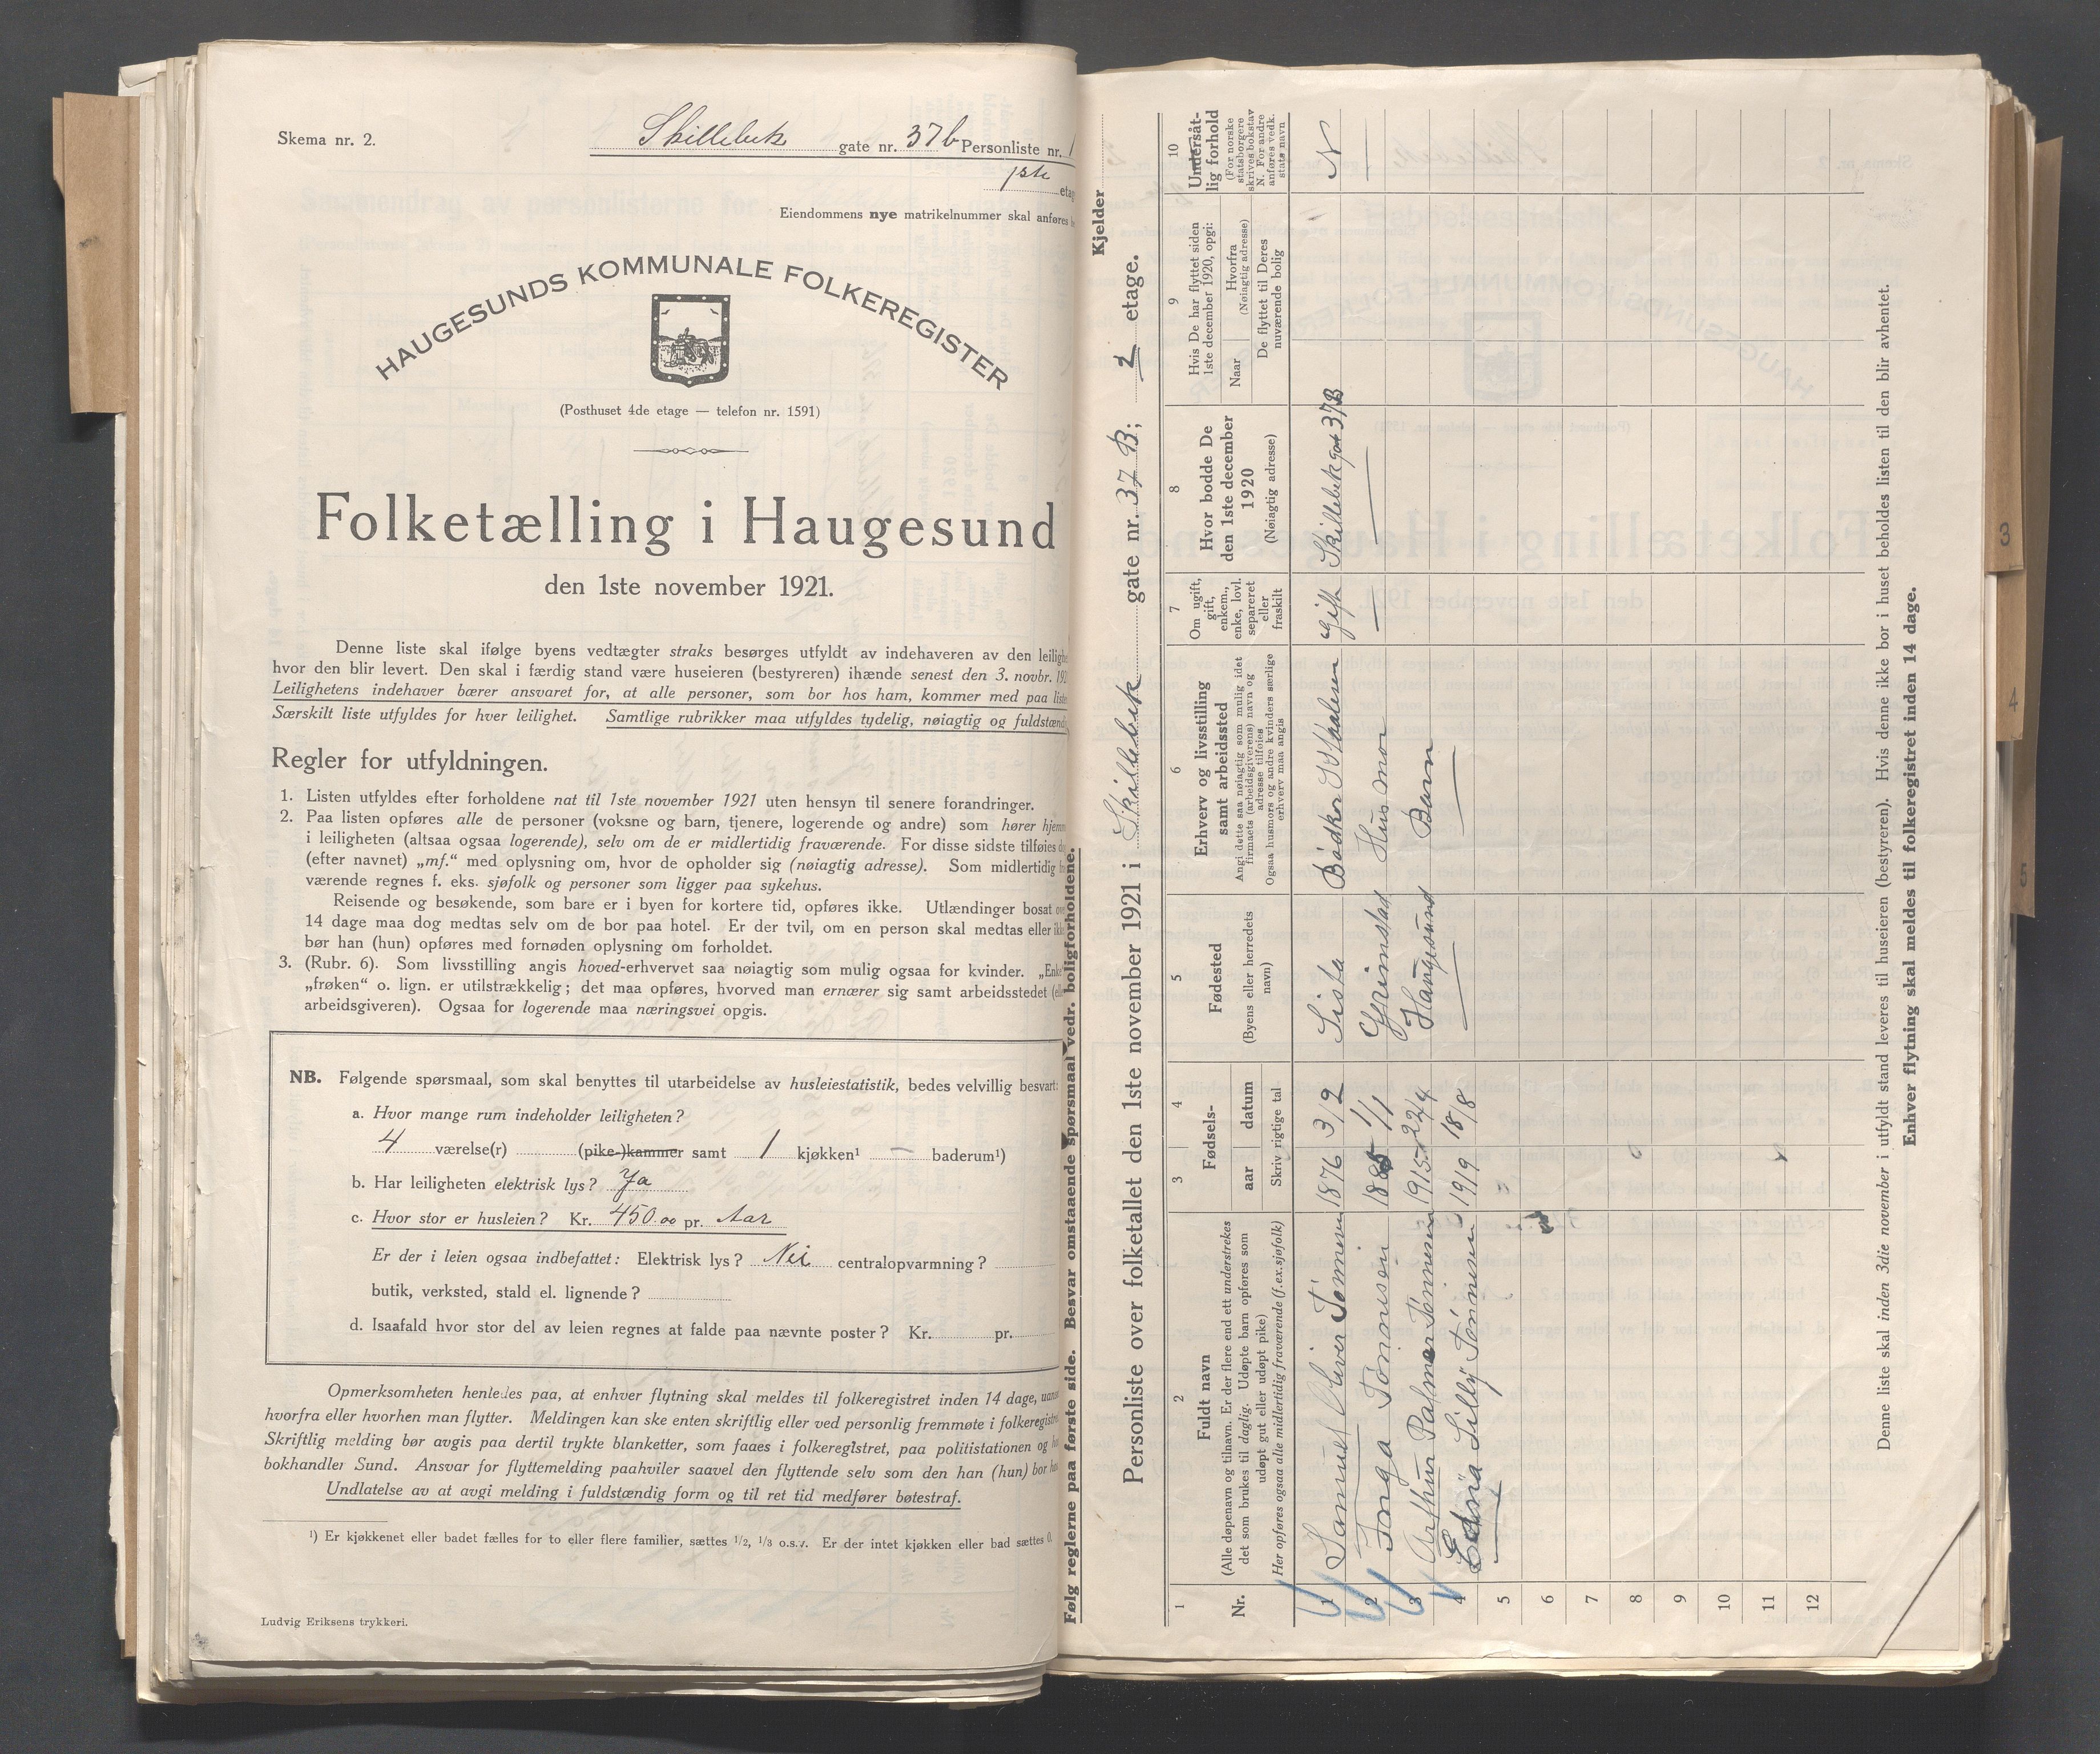 Skema nr. 2.
Skillebek gate nr. 37b Personliste nr. 1
1ste etag
Eiendommens nye matrikelnummer skal anføres
HAUGESUNDS KOMMUNALE FOLKEREGISTER
(Posthuset 4de etage — telefon nr. 1591)
Folketælling i Haugesund
den 1ste november 1921.
Denne liste skal ifølge byens vedtægter straks besørges utfyldt av indehaveren av den leiligh
hvor den blir levert. Den skal i færdig stand være huseieren (bestyreren) ihænde senest den 3. novbr. 192
Leilighetens indehaver bærer ansvaret for, at alle personer, som bor hos ham, kommer med paa liste
Særskilt liste utfyldes for hver leilighet. Samtlige rubrikker maa utfyldes tydelig, nøiagtig og fuldstænd
Regler for utfyldningen.
1. Listen utfyldes efter forholdene nat til 1ste november 1921 uten hensyn til senere forandringer.
2. Paa listen opføres alle de personer (voksne og barn, tjenere, logerende og andre) som hører hjem
i leiligheten (altsaa ogsaa logerende), selv om de er midlertidig fraværende. For disse sidste tilføies d
(efter navnet) „mf.“ med oplysning om, hvor de opholder sig (nøiagtig adresse). Som midlertidig
værende regnes f. eks. sjøfolk og personer som ligger paa sykehus.
Reisende og besøkende, som bare er i byen for kortere tid, opføres ikke. Utlændinger bosat ov
14 dage maa dog medtas selv om de bor paa hotel. Er der tvil, om en person skal medtas eller ikk
bør han (hun) opføres med fornøden oplysning om forholdet.
3. (Rubr. 6). Som livsstilling angis hoved-erhvervet saa nøiagtig som mulig ogsaa for kvinder. „Enke
„frøken“ o. lign. er utilstrækkelig; det maa opføres, hvorved man ernærer sig samt arbeidsstedet (ell
arbeidsgiveren). Ogsaa for logerende maa næringsvei opgis.
NB. Følgende spørsmaal, som skal benyttes til utarbeidelse av husleiestatistik, bedes velvillig besvart:
a. Hvor mange rum indeholder leiligheten?
4 værelse(r) (pike-)kammer samt 1 kjøkken¹ — baderum¹)
b. Har leiligheten elektrisk lys? Ja
c. Hvor stor er husleien? Kr. 450.00 pr. Aar
Er der i leien ogsaa indbefattet: Elektrisk lys? Nei centralopvarmning?
butik, verksted, stald el. lignende?
d. Isaafald hvor stor del av leien regnes at falde paa nævnte poster? Kr. pr.
Opmerksomheten henledes paa, at enhver flytning skal meldes til folkeregistret inden 14 dage, uans
hvorfra eller hvorhen man flytter. Meldingen kan ske enten skriftlig eller ved personlig fremmøte i folkeregist
Skriftlig melding bør avgis paa dertil trykte blanketter, som faaes i folkeregistret, paa politistationen og
bokhandler Sund. Ansvar for flyttemelding paahviler saavel den flyttende selv som den han (hun) bor
Undlatelse av at avgi melding i fuldstændig form og til ret tid medfører bøtestraf.
¹) Er kjøkkenet eller badet fælles for to eller flere familier, sættes 1/2, 1/3 o.s.v. Er der intet kjøkken eller bad sættes 0.
Ludvig Eriksens trykkeri.
Følg reglerne paa første side. Besvar omstaaende spørsmaal vedr. boligforholdene.
Kjelder
Personliste over folketallet den 1ste november 1921 i Skillebek gate nr. 37 B; 2 etage.
1
Nr.
2
Fuldt navn
(Alle døpenavn og tilnavn. Er der flere end ett understrekes
det som brukes til daglig. Udøpte barn opføres som
udøpt gut eller udøpt pike)
Her opføres ogsaa alle midlertidig fraværende (f.ex.sjøfolk)
3 4
Fødsels-
aar datum
Skriv rigtige tal
5
Fødested
(Byens eller herredets
navn)
6
Erhverv og livsstilling
samt arbeidssted
Angi dette saa nøiagtig som mulig idet
firmaets (arbeidsgiverens) navn og
adresse tilføies
Ogsaa husmors og andre kvinders særlige
erhverv maa angis
7
Om ugift,
gift,
enkem.,
enke, lovl.
separeret
eller
fraskilt
8
Hvor bodde De
den 1ste december
1920
(Nøiagtig adresse)
9
Hvis De har flyttet siden
1ste december 1920, opgi:
Naar
Hvorfra
(Nøiagtig adresse)
De flyttet til Deres
nuværende bolig
10
Undersåt-
lig forhold
(For norske
statsborgere
skrives bokstav
N. For andre
anføres vedk.
stats navn
1 Samuel Oliver Tönnesen 1876 3/2 Sista Bödker gift Skillebekgat 37B N
2 Inga Tönnesen 1885 1/1 Grimstad Husmor — — —
3 Arthur Palmer Tönnesen 1915 22/4 Haugesund Barn
4 Edna Lilly Tönnesen 1919 18/8 — —
5
6
7
8
9
10
11
12
Denne liste skal inden 3die november i utfyldt stand leveres til huseieren (bestyreren). Hvis denne ikke bor i huset beholdes listen til den blir avhentet.
Enhver flytning skal meldes til folkeregistret inden 14 dage.
3
4
5